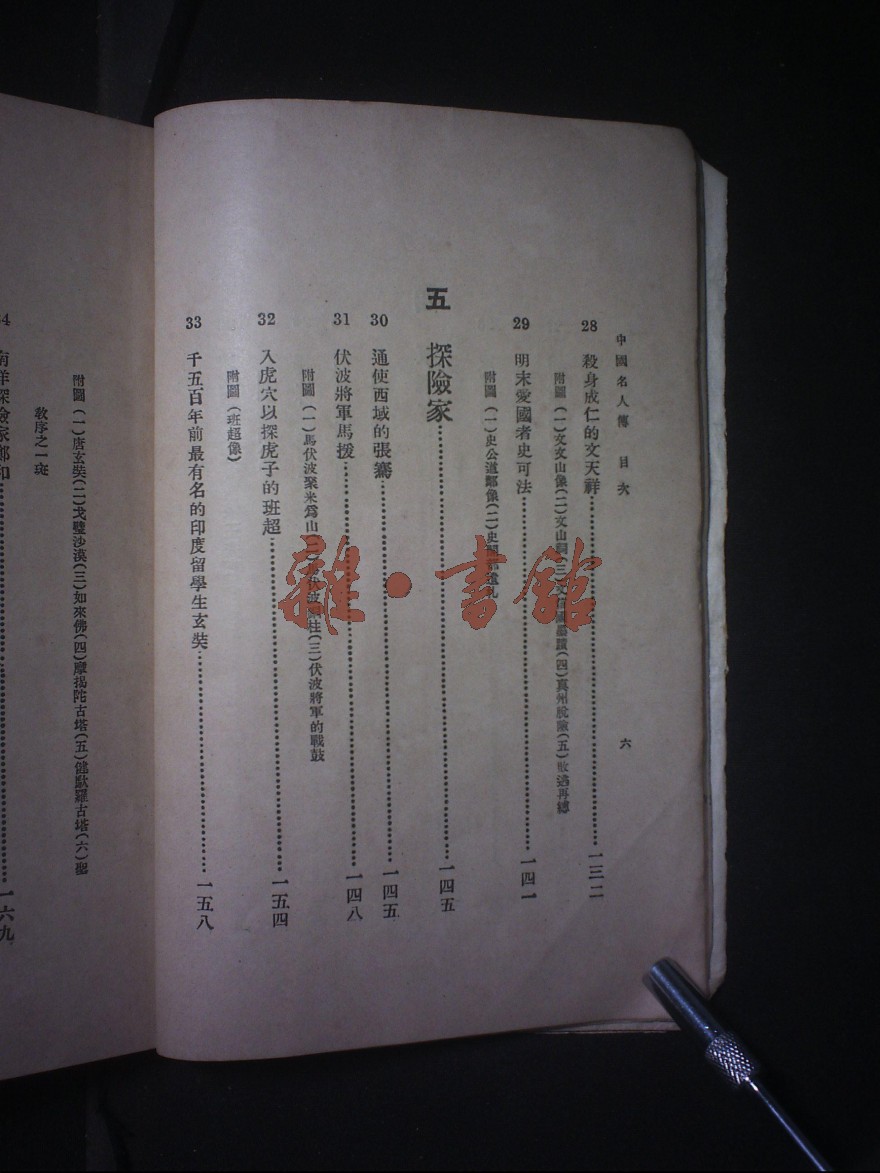 中國名人傳 目次
六
28 殺身成仁的文天祥……一三二
附圖(一)文文山像(二)文山祠(三)文信國墨蹟(四)真州脫險(五)敗逃再總
29 明末愛國者史可法……一四一
附圖(一)史公道鄰像(二)史閣部遺札
五 探險家……一四五
30 通使西域的張騫……一四五
31 伏波將軍馬援……一四八
附圖(一)馬伏波聚米為山(二)馬伏波銅柱(三)伏波將軍的戰鼓
32 入虎穴以探虎子的班超……一五四
附圖(班超像)
33 千五百年前最有名的印度留學生玄奘……一五八
附圖(一)唐玄奘(二)戈壁沙漠(三)如來佛(四)摩揭陀古塔(五)健馱羅古塔(六)聖
教序之一斑
南洋探險家鄭和……一六九
雜·書館